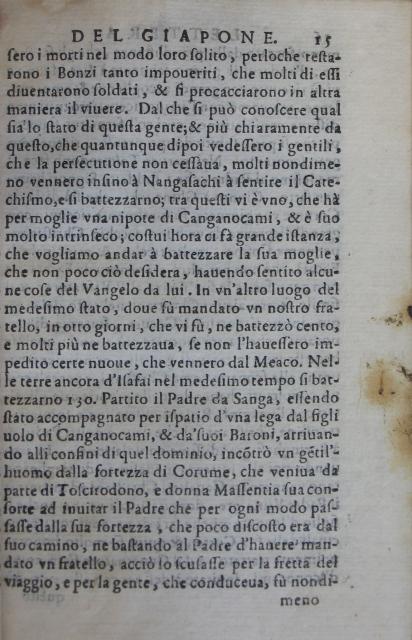 DEL GIAPONE. 15
ſero i morti nel modo loro ſolito, perloche reſta-
rono i Bonzi tanto impoueriti, che molti di eſſi
diuentarono ſoldati, & ſi procacciarono in altra
maniera il viuere. Dal che ſi può conoſcere qual
ſia lo ſtato di queſta gente; & più chiaramente da
queſto, che quantunque dipoi vedeſſero i gentili,
che la perſecutione non ceſſaua, molti nondime-
no vennero inſino à Nangaſachi à ſentire il Cate-
chiſmo, e ſi battezzarno; tra queſti vi è vno, che hà
per moglie vna nipote di Canganocami, & è ſuo
molto intrinſeco; coſtui hora ci fà grande iſtanza,
che vogliamo andar à battezzare la ſua moglie,
che non poco ciò deſidera, hauendo ſentito alcu-
ne coſe del Vangelo da lui. In vn'altro luogo del
medeſimo ſtato, doue fù mandato vn noſtro fra-
tello, in otto giorni, che vi fù, ne battezzò cento,
e molti più ne battezzaua, ſe non l'haueſſero im-
pedito certe nuoue, che vennero dal Meaco. Nel-
le terre ancora d'Iſafai nel medeſimo tempo ſi bat-
tezzarno 130. Partito il Padre da Sanga, eſſendo
ſtato accompagnato per iſpatio d'vna lega dal figli
uolo di Canganocami, & da'ſuoi Baroni, arriuan-
do alli confini di quel dominio, incõtrò vn gẽtil'-
huomo dalla fortezza di Corume, che veniua da
parte di Toſcirodono, e donna Maſſentia ſua con-
ſorte ad inuitar il Padre che per ogni modo paſ-
ſaſſe dalla ſua fortezza, che poco diſcoſto era dal
ſuo camino, ne baſtando al Padre d'hauere man-
dato vn fratello, acciò lo ſcuſaſſe per la fretta del
viaggio, e per la gente, che conduceua, fù nondi-
meno